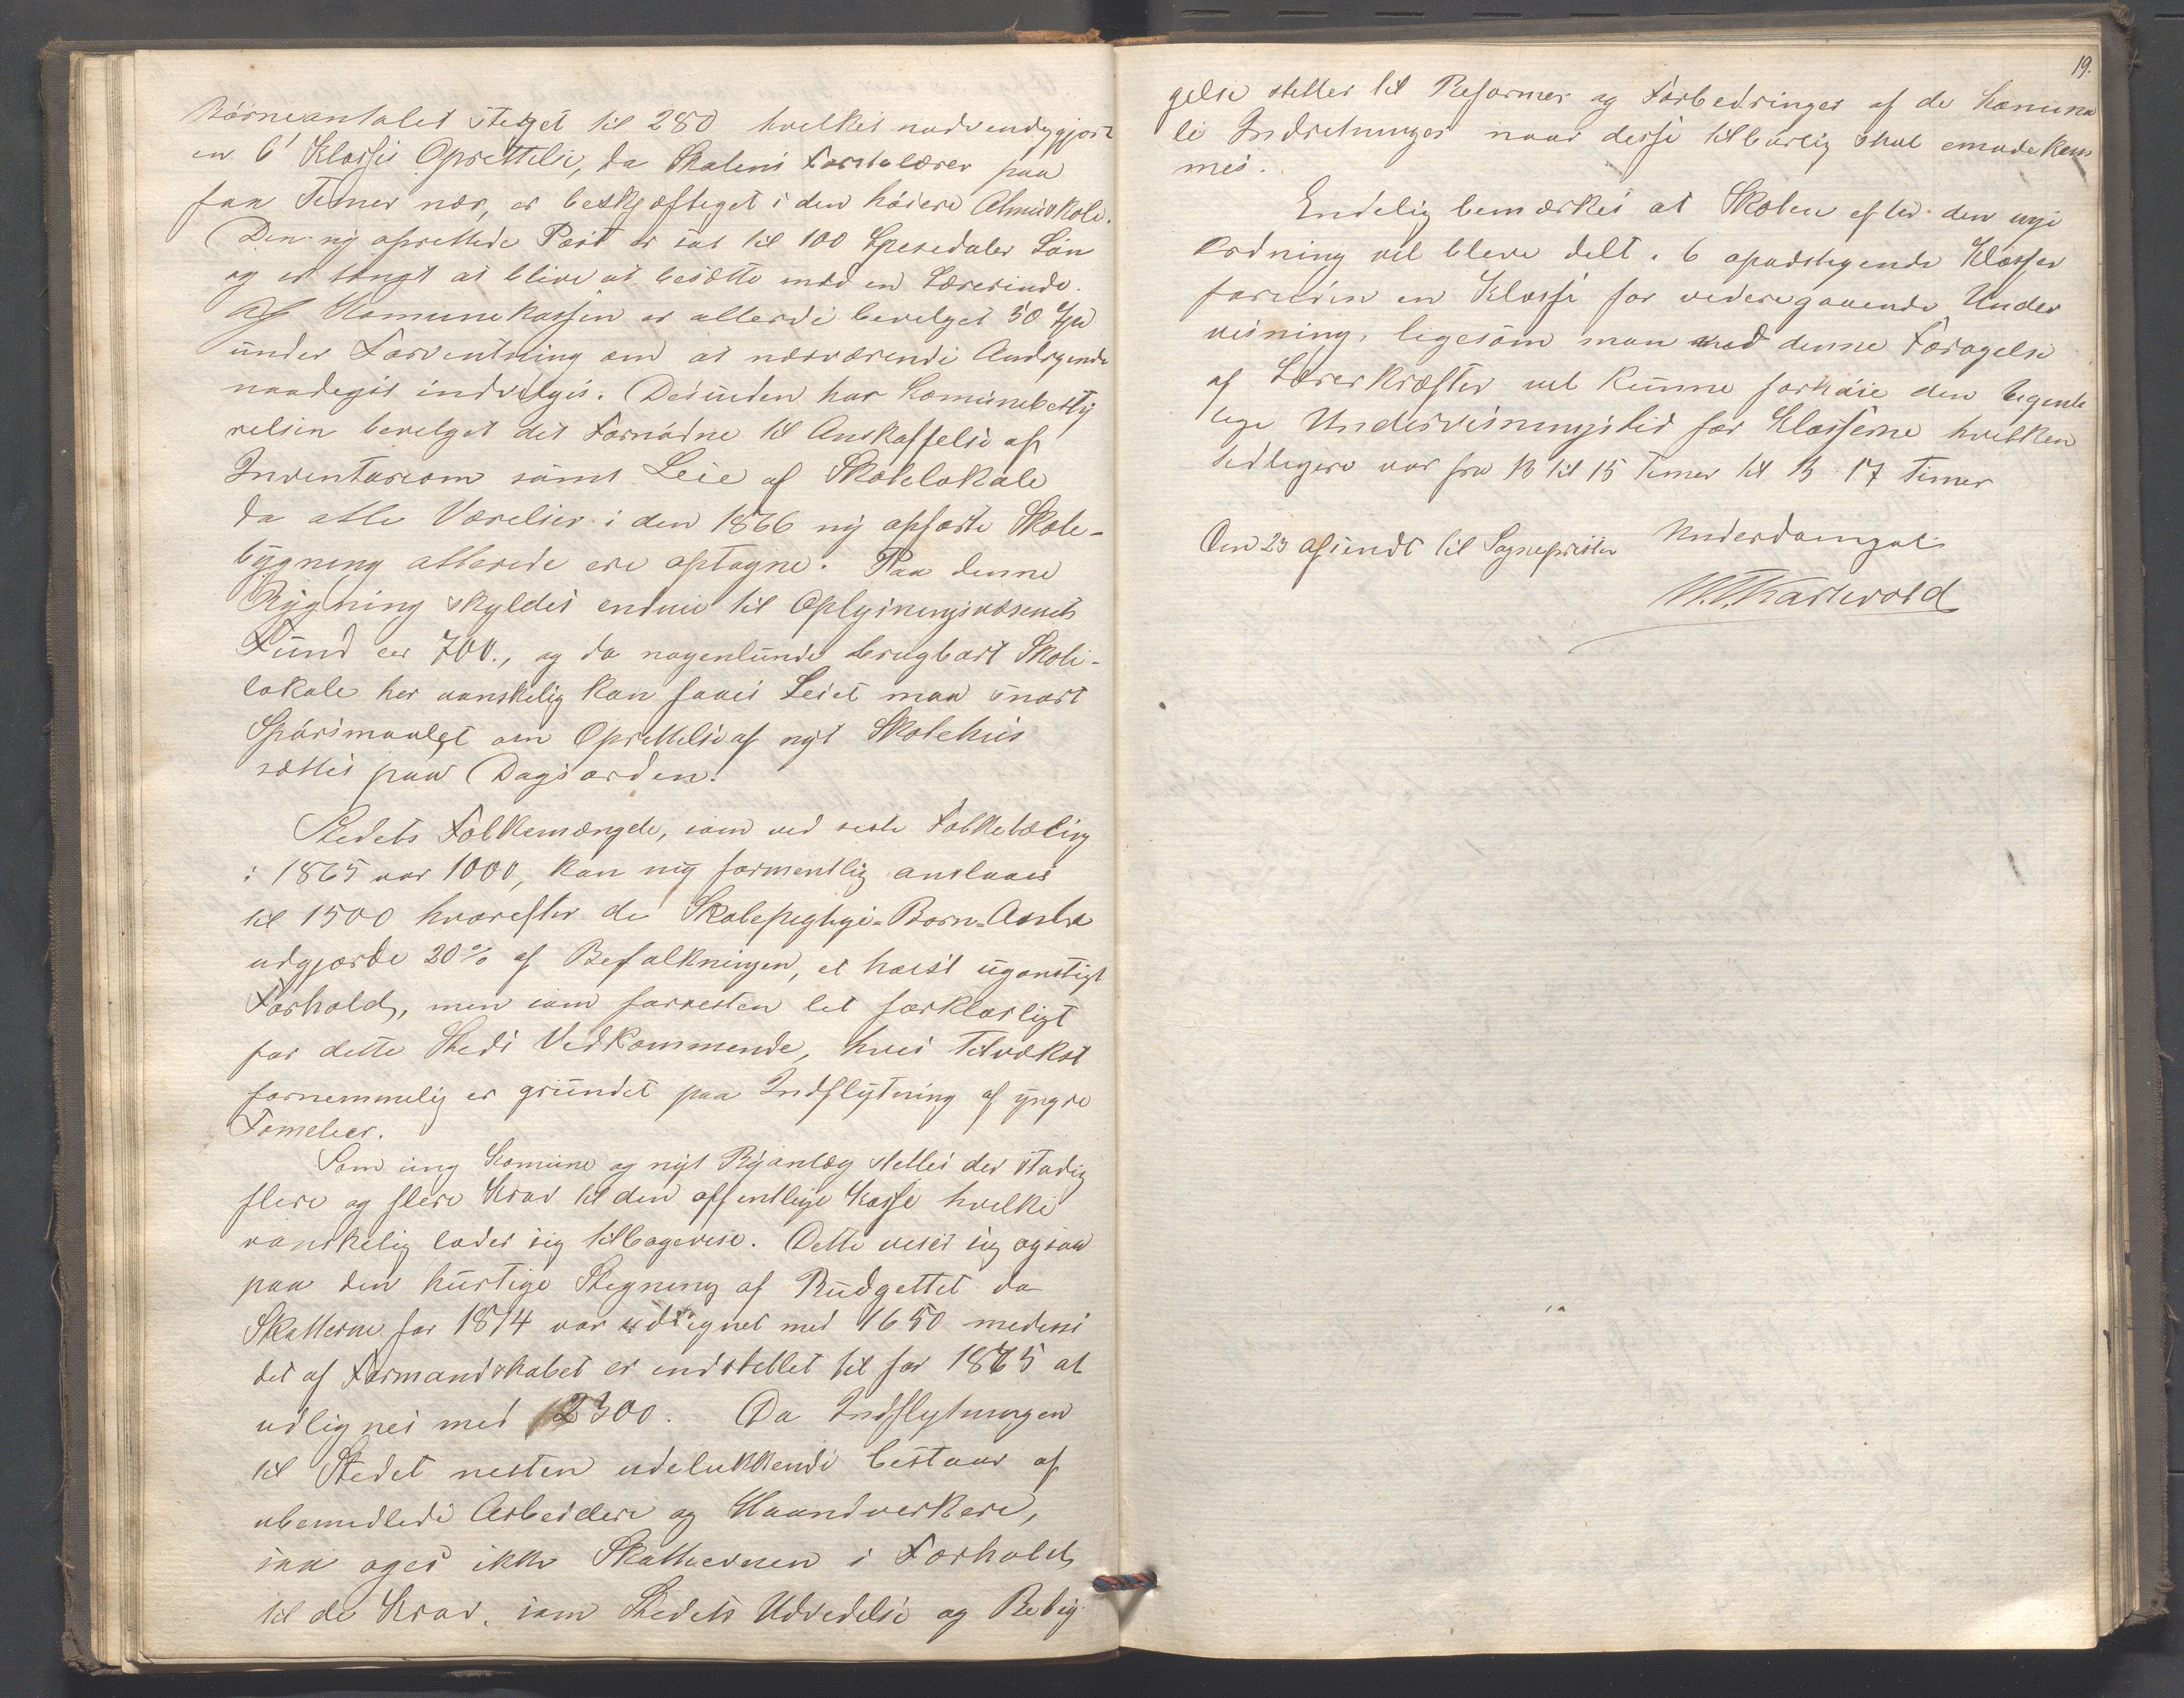 Børneantalet steget til 280 hvilket nødvendiggjort
en 6t Klasses Oprettelse, da Skolens Førstelærer paa
faa Timer nær, er beskjæftiget i den høiere Almueskole.
Den ny oprettede Post er sat til 100 Spesedaler Løn
og er tængt at blive at besætte med en Lærerinde.
Af Komunekassen er allerede bevilget 50 Spd
under Forventning om at nærværende Andragende
naadegst indvilges. Desuden har Komunebesty
relsen bevelget det Fornødne til Anskaffelse af
Inventarium samt Leie af Skolelokale
da alle Værelser i den 1866 ny opførte Skole-
bygning allerede ere optagne. Paa denne
Bygning skyldes endnu til Oplysningsvæsenets
Fund 700., og da nogenlunde brugbart Skole-
lokale her vanskelig kan faaes Leiet maa snart
Spørsmaalet om Oprettelse af nyt Skolehus
sættes paa Dagsorden.
Stedets Folkemængde, som ved siste Folketæling
i 1865 var 1000, kan nu formentlig anslaaes
til 1500 hvorefter de Skolepligtige-Børn-Antal
udgjorde 20% af Befolkningen, et høist ugunstigt
Forhold, men som forresten let forklarligt
for dette Steds Vedkommende, hvis Tilvækst
fornemmelig er grundet paa Indflytning af yngre
Famelier.
Som ung Komune og nyt Byanlæg stilles der stadig
flere og flere Krav til den offentlige Kasse hvilke
vanskelig lader sig tilbagevise. Dette viser sig ogsaa
paa den hurtige Stegning af Budgettet da
Skatterne for 1874 var udlignet med 1650 medens
det af Formandskabet er indstillet til for 1875 at
udlignes med 2300. Da Indflytningen
til Stedet nesten udelukkende bestaar af
ubemidlede Arbeidere og Haandverkere,
saa øges ikke Skatteevnen i Forhold
til de Krav, som Stedets Udvidelse og Bebyg
19.
gelse stiller til Reformer og Forbedringer af de Komuna
le Indretninger naar disse tilbørlig skal imødekom
mes.
Endelig bemærkes at Skolen efter den nye
Ordning vil bleve delt i 6 opadstigende Klasser
foruden en Klasse for videregaaende Under
visning, ligesom man med denne Forøgelse
af Lærerkræfter vil kunne forhøie den ugent
lige Undervisningstid for Klasserne hvilken
tidligere var fra 13 til 15 Timer til 15 17 Timer
Underdanigst
Den 23 afsendt til Sognepresten